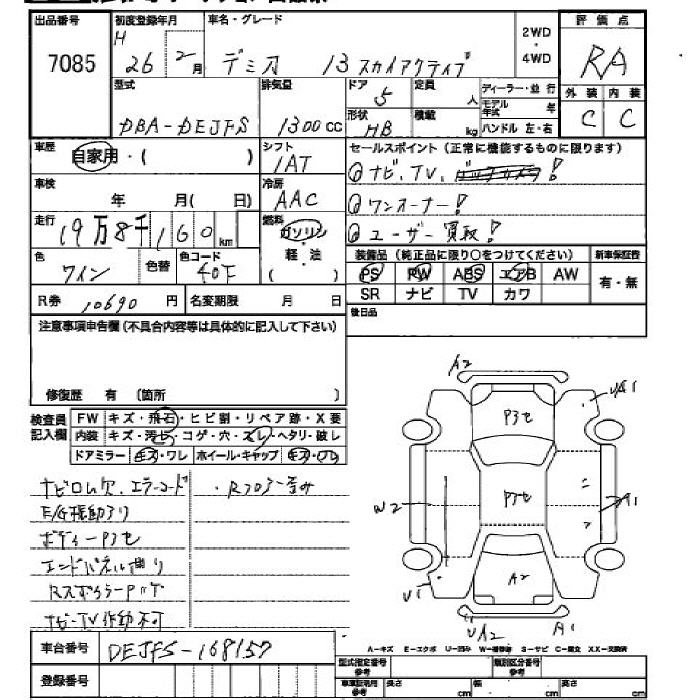 出品番号 初度登録年月 車名・グレード 評価点
7085 H 26 2月 デミオ 13 スカイアクティブ 2WD・4WD RA
型式 排気量 ドア 定員 ディーラー・並行 外装 内装
DBA-DEJFS 1300cc 5 人 モデル年式 年 C C
形状 積載 ハンドル 左・右
HB kg
車歴 自家用・( ) シフト セールスポイント (正常に機能するものに限ります)
IAT
車検 年 月( 日) 冷房 ①ナビ、TV、
AAC ②ワンオーナー!
走行 19万8千160km 燃料 ③ユーザー買取!
ガソリン・軽・油 ( )
色 色替 色コード 装備品 (純正品に限り○をつけてください) 新車保証書
ワイン 40F PS PW ABS エアB AW 有・無
SR ナビ TV カワ
R券 10690円 名変期限 月 日 後日品
注意事項申告欄 (不具合内容等は具体的に記入して下さい)
修復歴 有 (箇所 )
検査員記入欄 FW キズ・飛石・ヒビ割・リペア跡・X要
内装 キズ・汚レ・コゲ・穴・スレ・ヘタリ・破レ
ドアミラー キズ・ワレ ホイール・キャップ キズ・ワレ
ナビロム欠、エラーコード ・Rフロアー歪み
E/G振動アリ
ボディーP3セ
エンドパネル曲り
Rスポイラー
ナビ・TV作動不可
A2 UA1
P3セ
W2 P3セ A1
A2
U1 UA2 A1
車台番号 DEJFS-168157
A-キズ E-エクボ U-凹み W-補修跡 S-サビ C-腐食 XX-交換済
登録番号
型式指定番号 参考 類別区分番号 参考
車車証記用 参考 長さ cm 幅 cm 高さ cm